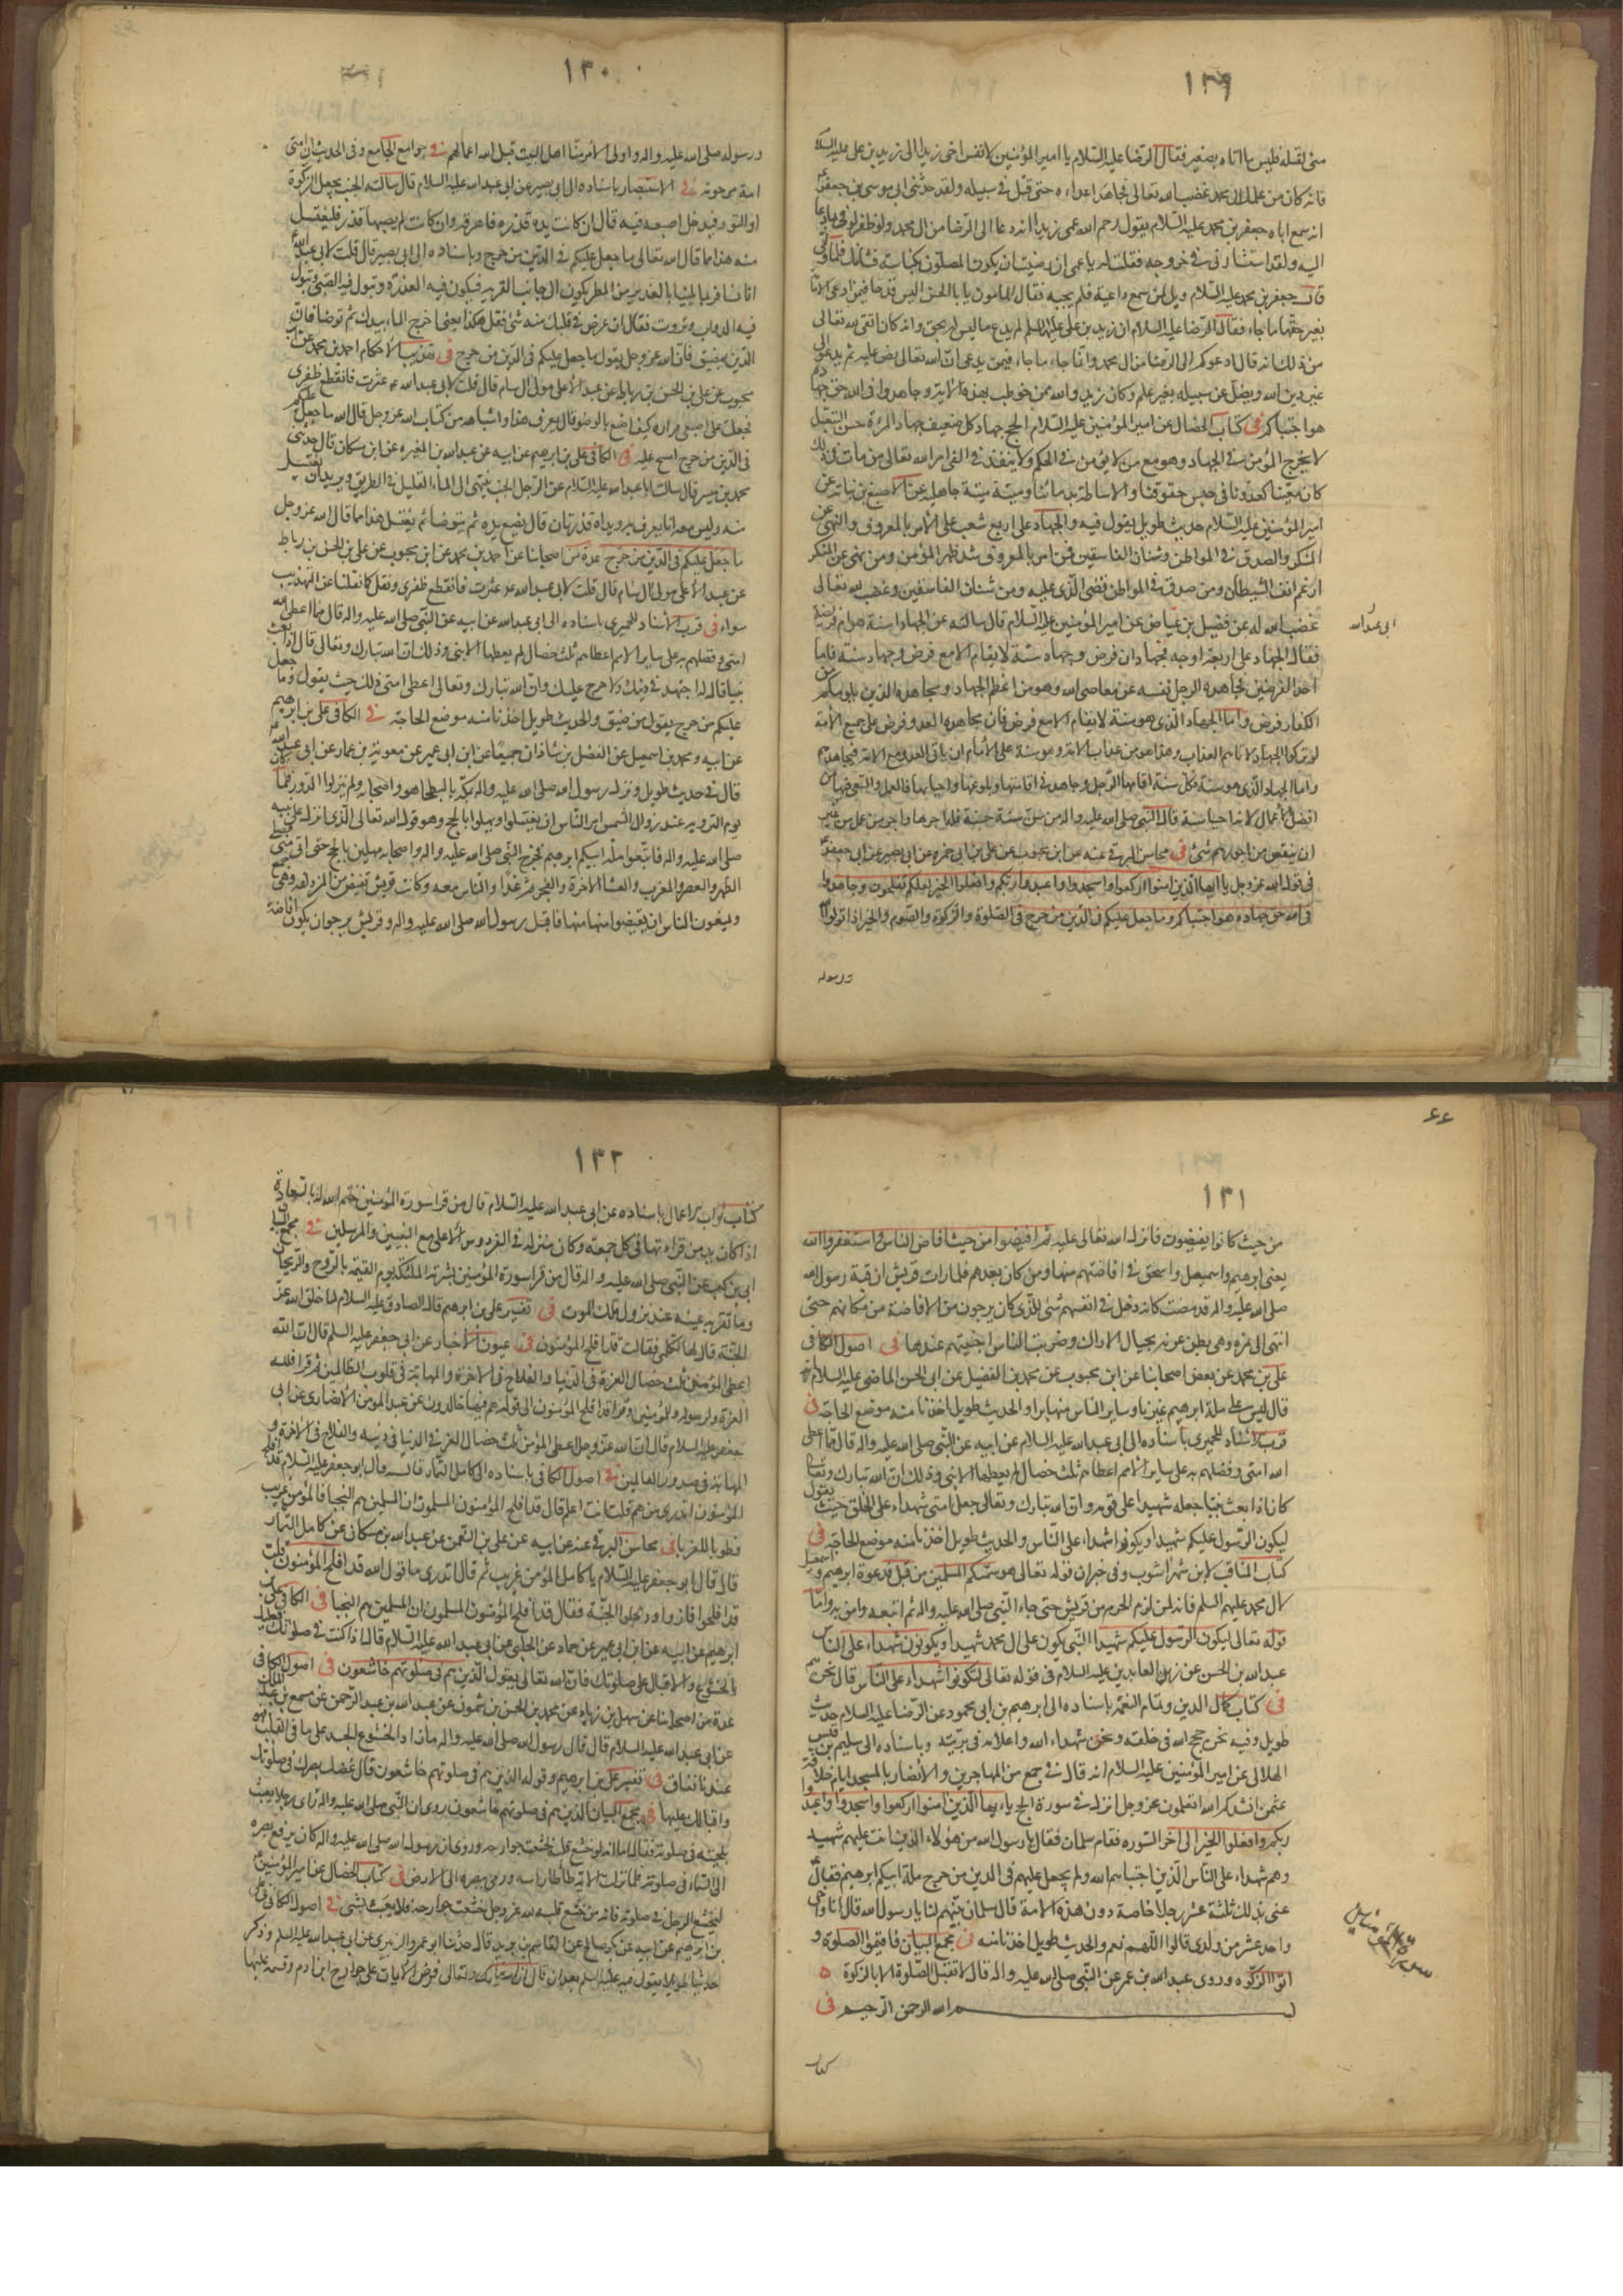 ١٢٩
منى لقتله فليس ما اتاه بصغير فقال الرضا عليه السلام يا امير المؤمنين لا تقس اخى زيدا الى زيد بن على عليه السلام
فانه كان من علماء ال محمد غضب لله تعالى فجاهد اعداءه حتى قتل فى سبيله ولقد حدثنى ابى موسى بن جعفر
انه سمع اباه جعفر بن محمد عليه السلام يقول رحم الله عمى زيدا انه دعا الى الرضا من ال محمد ولو ظفر لوفى بما دعا
اليه ولقد استشارنى فى خروجه فقلت له يا عمى ان رضيت ان يكون المصلوب بكناسة فشانك فلما ولى
قال جعفر بن محمد عليه السلام ويل لمن سمع داعيته فلم يجبه فقال المامون يا با الحسن اليس قد جا فيمن ادعى الامامة
بغير حقها ما جاء فقال الرضا عليه السلام ان زيد بن على عليه السلم لم يدع ما ليس له بحق وانه كان اتقى لله تعالى
من ذلك انه قال ادعوكم الى الرضا من ال محمد وانما جاء ما جاء فيمن يدعى ان الله تعالى نص عليه ثم يدعو الى
غير دين الله ويضل عن سبيله بغير علم وكان زيد والله ممن خوطب بهذه الاية وجاهدوا فى الله حق جهاده
هو اجتباكم فى كتاب الخصال عن امير المؤمنين عليه السلام الحج جهاد كل ضعيف جهاد المراة حسن التبعل
لا يخرج المؤمن فى الجهاد وهو مع من لا يؤمن فى الحكم ولا ينفذ فى الفىء امر الله تعالى من مات فى ذلك
كان معينا لعدونا فى حبس حقوقنا والاساطة بدمائنا وميتته ميتة جاهلية عن الاصبغ بن نباته عن
امير المؤمنين عليه السلام حديث طويل يقول فيه والجهاد على اربع شعب على الامر بالمعروف والنهى عن
المنكر والصدق فى المواطن وشنان الفاسقين فمن امر بالمعروف شد ظهر المؤمن ومن نهى عن المنكر
ارغم انف الشيطان ومن صدق فى المواطن قضى الذى عليه ومن شنان الفاسقين وغضب لله تعالى
غضب الله له عن فضيل بن عياض عن امير المؤمنين عليه السلام قال سالته عن الجهاد اسنة هو ام فريضة
ابى عبد الله
فقال الجهاد على اربعة اوجه فجهادان فرض وجهاد سنة لا يقام الا مع فرض وجهاد سنة فاما
احد الفرضين فمجاهدة الرجل نفسه عن معاصى الله وهو من اعظم الجهاد ومجاهدة الذين يلونكم من
الكفار فرض واما الجهاد الذى هو سنة لا يقام الا مع فرض فان مجاهدة العدو فرض على جميع الامة
لو تركوا الجهاد لاتاهم العذاب وهذا هو من عذاب الامة وهو سنة على الامام ان ياتى العدو مع الامة فيجاهدهم
واما الجهاد الذى هو سنة فكل سنة اقامها الرجل وجاهد فى اقامتها وبلوغها واحيايها فالعمل والسعى فيها من
افضل الاعمال لانه احيا سنة قال النبى صلى الله عليه واله من سن سنة حسنة فله اجرها واجر من عمل من غير
ان ينتقص من اجورهم شئ فى محاسن البرقى عنه عن ابن محبوب عن على بن ابى حمزه عن ابى بصير عن ابى جعفر
فى قول الله عز وجل يا ايها الذين امنوا اركعوا واسجدوا واعبدوا ربكم وافعلوا الخير لعلكم تفلحون وجاهدوا
فى الله حق جهاده هو اجتباكم وما جعل عليكم فى الدين من حرج فى الصلوة والزكوة والصوم والخير اذا تولوا الله
ورسوله
١٣٠
ورسوله صلى الله عليه واله واولى الامر منا اهل البيت قبل الله اعمالهم فى جوامع الجامع وفى الحديث ان امتى
امة مرحومة فى الاستبصار باسناده الى ابى بصير عن ابى عبد الله عليه السلام قال سالته الجنب يجعل الركوة
او التور فيدخل اصبعه فيه قال ان كانت يده قذره فاهرقه وان كانت لم يصبها قذر فليغتسل
منه هذا مما قال الله تعالى ما جعل عليكم فى الدين من حرج وباسناده الى ابى بصير قال قلت لابى عبد الله
انا نسافر فربما بلينا بالغدير من المطر يكون الى جانب القرية فيكون فيه العذرة ويبول فيه الصبى ويبول
فيه الدواب وتروث فقال ان عرض فى قلبك منه شئ فقل هكذا يعنى اخرج الماء بيدك ثم توضا فان
الدين ليس بمضيق فان الله عز وجل يقول ما جعل عليكم فى الدين من حرج فى تهذيب الاحكام احمد بن محمد عن ابن
محبوب عن على بن الحسن بن رباط عن عبد الاعلى مولى ال سام قال قلت لابى عبد الله ع عثرت فانقطع ظفرى
فجعلت على اصبعى مرارة كيف اصنع بالوضو قال يعرف هذا واشباهه من كتاب الله عز وجل قال الله ما جعل عليكم
فى الدين من حرج امسح عليه فى الكافى على بن ابرهيم عن ابيه عن عبد الله بن المغيره عن ابن مسكان قال حدثنى
محمد بن ميسر قال سالت ابا عبد الله عليه السلام عن الرجل الجنب ينتهى الى الماء القليل فى الطريق ويريد ان يغتسل
منه وليس معه انا يغرف به ويداه قذرتان قال يضع يده ثم يتوضا ثم يغتسل هذا مما قال الله عز وجل
ما جعل عليكم فى الدين من حرج عدة من اصحابنا عن احمد بن محمد عن ابن محبوب عن على بن الحسن بن رباط
عن عبد الاعلى مولى ال سام قال قلت لابى عبد الله ع عثرت فانقطع ظفرى ونقل كما نقلنا عن التهذيب
سواء فى قرب الاسناد للحميرى باسناده الى ابى عبد الله عن ابيه عن النبى صلى الله عليه واله قال مما اعطى الله
امتى وفضلهم به على ساير الامم اعطاهم ثلث خصال لم يعطها الا نبى وذلك ان الله تبارك وتعالى كان اذا بعث
نبيا قال له اجتهد فى دينك ولا حرج عليك وان الله تبارك وتعالى اعطى امتى ذلك حيث يقول وما جعل
عليكم من حرج يقول من ضيق والحديث طويل اخذنا منه موضع الحاجة فى الكافى على بن ابرهيم
عن ابيه ومحمد بن اسمعيل عن الفضل بن شاذان جميعا عن ابن ابى عمير عن معوية بن عمار عن ابى عبد الله
قال فى حديث طويل ونزل رسول الله صلى الله عليه واله بمكة بالبطحا هو واصحابه ولم ينزلوا الدور فلما كان
يوم التروية عند زوال الشمس امر الناس ان يغتسلوا ويهلوا بالحج وهو قول الله تعالى الذى انزله على نبيه
صلى الله عليه واله فاتبعوا ملة ابيكم ابرهيم فخرج النبى صلى الله عليه واله واصحابه مهلين بالحج حتى اتى منى فصلى
الظهر والعصر والمغرب والعشا الاخرة والفجر ثم غدا والناس معه وكانت قريش تفيض من المزدلفة وهى جمع
ويمنعون الناس ان يفيضوا منها منها فاقبل رسول الله صلى الله عليه واله وقريش يرجوان يكون افاضة
٤٤
١٣١
من حيث كانوا يفيضون فانزل الله تعالى عليه ثم افيضوا من حيث افاض الناس واستغفروا الله
يعنى ابرهيم واسمعيل واسحق فى افاضتهم منها ومن كان بعدهم فلما رات قريش ان قبة رسول الله
صلى الله عليه واله قد مضت كانه دخل فى انفسهم شئ للذى كان يرجون من الافاضة من مكانهم حتى
انتهى الى نمره وهى بطن عرنه بجيال الاراك وضربت الناس اخبيتهم عندها فى اصول الكافى
على بن محمد عن بعض اصحابنا عن ابن محبوب عن محمد بن الفضيل عن ابى الحسن الماضى عليه السلام انه
قال ليس على ملة ابرهيم غيرنا وساير الناس منها براء والحديث طويل اخذنا منه موضع الحاجة فى
قرب الاسناد للحميرى باسناده الى ابى عبد الله عليه السلام عن ابيه عن النبى صلى الله عليه واله قال مما اعطى
الله امتى وفضلهم به على ساير الامم اعطاهم ثلث خصال لم يعطها الا نبى وذلك ان الله تبارك وتعالى
كان اذا بعث نبيا جعله شهيدا على قومه وان الله تبارك وتعالى جعل امتى شهداء على الخلق حيث يقول
ليكون الرسول عليكم شهيدا ويكونوا شهداء على الناس والحديث طويل اخذنا منه موضع الحاجة فى
كتاب المناقب لابن شهراشوب وفى خبر ان قوله تعالى هو سمكم المسلمين من قبل فدعوة ابرهيم واسمعيل
لال محمد عليهم السلم فانه لمن لزم الحرم من قريش حتى جاء النبى صلى الله عليه واله ثم اتبعه وامن به واما
قوله تعالى ليكون الرسول عليكم شهيدا النبى يكون على ال محمد شهيدا ويكونون شهداء على الناس
عبد الله بن الحسن عن زين العابدين عليه السلام فى قوله تعالى لتكونوا شهداء على الناس قال نحن هم
فى كتاب كمال الدين وتمام النعمة باسناده الى ابرهيم بن ابى محمود عن الرضا عليه السلام حديث
طويل وفيه نحن حجج الله فى خلقه ونحن شهداء الله واعلامه فى بريته وباسناده الى سليم بن قيس
الهلالى عن امير المؤمنين عليه السلام انه قال فى جمع من المهاجرين والانصار بالمسجد ايام خلافة
عثمن انشدكم الله اتعلمون عز وجل انزل فى سورة الحج يا ايها الذين امنوا اركعوا واسجدوا واعبدوا
ربكم وافعلوا الخير الى اخر السوره فقام سلمان فقال يا رسول الله من هؤلاء الذين انت عليهم شهيد
وهم شهداء على الناس الذين اجتباهم الله ولم يجعل عليهم فى الدين من حرج ملة ابيكم ابرهيم فقال
عنى بذلك ثلثة عشر رجلا خاصة دون هذه الامة قال سلمان بينهم لنا يا رسول الله قال انا واخى
واحد عشر من ولدى قالوا اللهم نعم والحديث طويل اخذنا منه فى مجمع البيان فاقيموا الصلوة و
اتوا الزكوة وروى عبد الله بن عمر عن النبى صلى الله عليه واله قال لا تقبل الصلوة الا بالزكوة
بسم الله الرحمن الرحيم فى
كتاب
١٣٢
كتاب ثواب الاعمال باسناده عن ابى عبد الله عليه السلام قال من قرا سورة المؤمنين ختم الله له بالسعادة
اذا كان يدمن قراءتها فى كل جمعة وكان منزله فى الفردوس الاعلى مع النبيين والمرسلين فى مجمع البيان
ابى بن كعب عن النبى صلى الله عليه واله قال من قرا سورة المؤمنين بشرته الملئكة يوم القيمة بالروح والريحان
وما تقر به عينه عند نزول ملك الموت فى تفسير على بن ابرهيم قال الصادق عليه السلام لما خلق الله عز
الجنة قال لها تكلمى فقالت قد افلح المؤمنون فى عيون الاخبار عن ابى جعفر عليه السلم قال ان الله
اعطى المؤمن ثلث خصال العزة فى الدنيا والفلاح فى الاخرة والمهابة فى قلوب الظالمين ثم قرا فلله
العزة ولرسوله وللمؤمنين وقرا قد افلح المؤمنون الى قوله هم فيها خالدون عن عبد المومن الانصارى عن ابى
جعفر عليه السلام قال ان الله عز وجل اعطى المؤمن ثلث خصال العز فى الدنيا فى دينه والفلاح فى الاخرة و
المهابة فى صدور العالمين فى اصول الكافى باسناده الى كامل التمار قال قال ابو جعفر عليه السلام قد افلح
المؤمنون اتدرى من هم قلت انت اعلم قال قد افلح المؤمنون المسلمون ان المسلمين هم النجبا فالمؤمن غريب
فطوبا للغربا فى محاسن البرقى عنه عن ابيه عن على بن النعمن عن عبد الله بن مسكان عن كامل التمار
قال قال ابو جعفر عليه السلام يا كامل المؤمن غريب ثم قال اتدرى ما قول الله قد افلح المؤمنون قلت
قد افلحوا فازوا ودخلوا الجنة فقال قد افلح المؤمنون المسلمون ان المسلمين هم النجبا فى الكافى على بن
ابرهيم عن ابيه عن ابن ابى عمير عن حماد عن الحلبى عن ابى عبد الله عليه السلام قال اذا كنت فى صلوتك فعليك
بالخشوع والاقبال على صلوتك فان الله تعالى يقول الذين هم فى صلوتهم خاشعون فى اصول الكافى
عدة من اصحابنا عن سهل بن زياد عن محمد بن الحسن بن شمون عن عبد الله بن عبد الرحمن عن مسمع بن عبد الملك
عن ابى عبد الله عليه السلام قال قال رسول الله صلى الله عليه واله ما زاد الخشوع الجسد على ما فى القلب فهو
عندنا نفاق فى تفسير على بن ابرهيم وقوله الذين هم فى صلوتهم خاشعون قال غضك بصرك فى صلوتك
واقبالك عليها فى مجمع البيان الذين هم فى صلوتهم خاشعون روى ان النبى صلى الله عليه واله راى رجلا يعبث
بلحيته فى صلوته فقال اما انه لو خشع قلبه لخشعت جوارحه وروى ان رسول الله صلى الله عليه واله كان يرفع بصره
الى السماء فى صلوته فلما نزلت الاية طاطا راسه ورمى ببصره الى الارض فى كتاب الخصال عن امير المؤمنين
ليخشع الرجل فى صلوته فانه من خشع قلبه لله عز وجل خشعت جوارحه فلا يعبث بشئ فى اصول الكافى على
بن ابرهيم عن ابيه عن بكر بن صالح عن القاسم بن بريد قال حدثنا ابو عمرو الزبيرى عن ابى عبد الله عليه السلم وذكر
حديثا طويلا يقول فيه عليه السلم بعد ان قال ان الله تبارك وتعالى فرض الايمان على جوارح ابن ادم وقسمه عليها